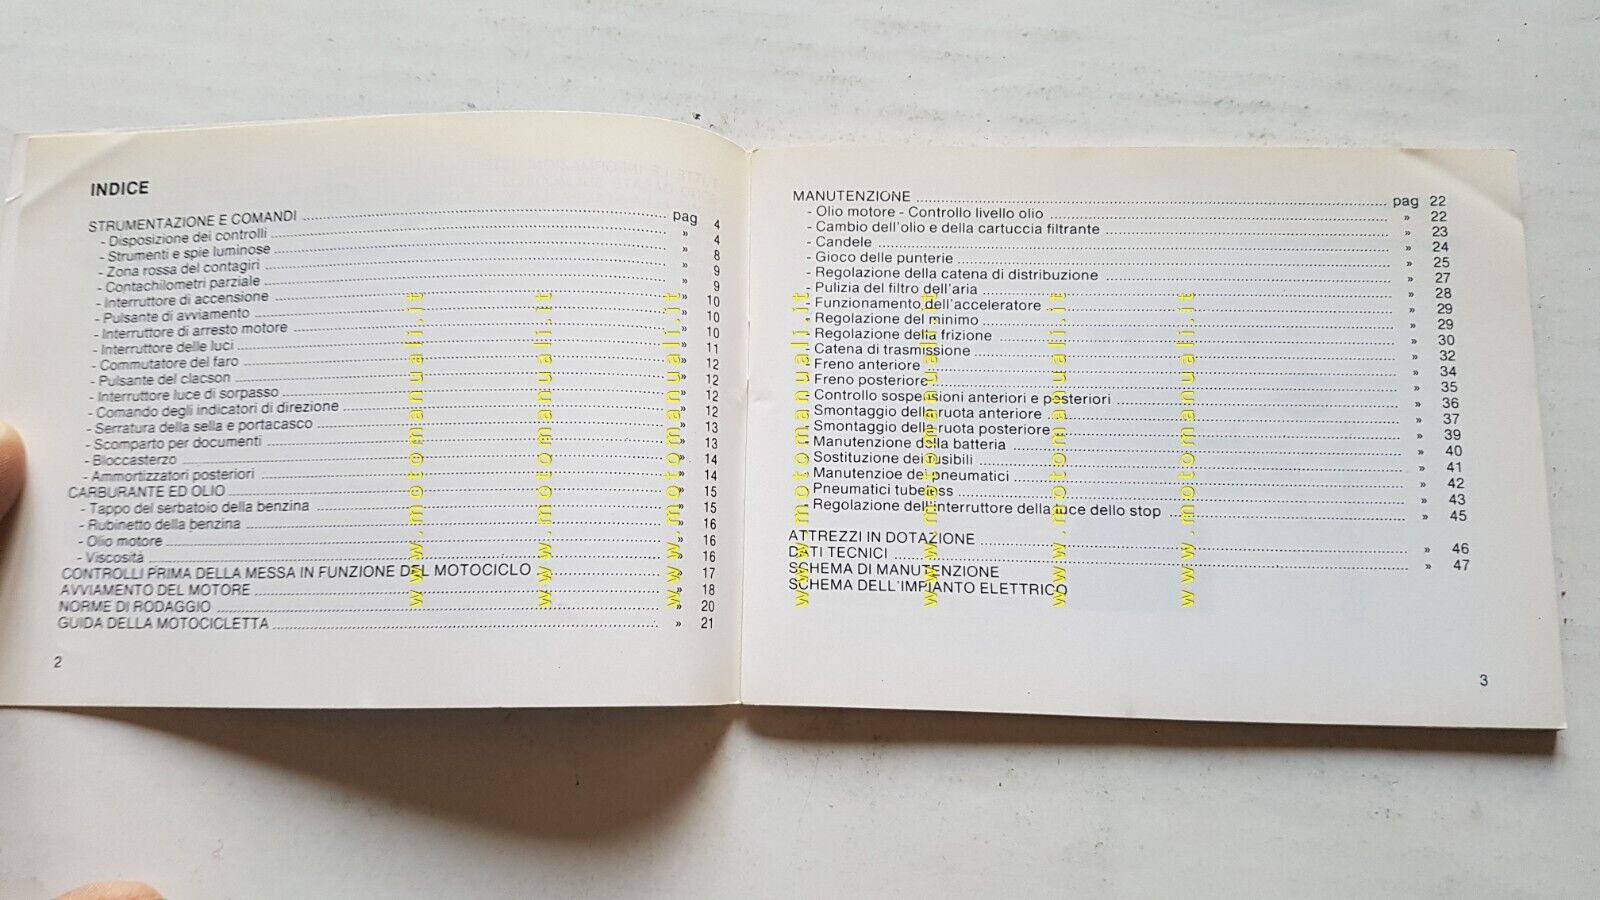 INDICE
STRUMENTAZIONE E COMANDI ........ pag 4
- Disposizione dei controlli ........ » 4
- Strumenti e spie luminose ........ » 8
- Zona rossa del contagiri ........ » 9
- Contachilometri parziale ........ » 9
- Interruttore di accensione ........ » 10
- Pulsante di avviamento ........ » 10
- Interruttore di arresto motore ........ » 10
- Interruttore delle luci ........ » 11
- Commutatore del faro ........ » 12
- Pulsante del clacson ........ » 12
- Interruttore luce di sorpasso ........ » 12
- Comando degli indicatori di direzione ........ » 12
- Serratura della sella e portacasco ........ » 13
- Scomparto per documenti ........ » 13
- Bloccasterzo ........ » 14
- Ammortizzatori posteriori ........ » 14
CARBURANTE ED OLIO ........ » 15
- Tappo del serbatoio della benzina ........ » 15
- Rubinetto della benzina ........ » 16
- Olio motore ........ » 16
- Viscosità ........ » 16
CONTROLLI PRIMA DELLA MESSA IN FUNZIONE DEL MOTOCICLO ........ » 17
AVVIAMENTO DEL MOTORE ........ » 18
NORME DI RODAGGIO ........ » 20
GUIDA DELLA MOTOCICLETTA ........ » 21
2
MANUTENZIONE ........ pag 22
- Olio motore - Controllo livello olio ........ » 22
- Cambio dell'olio e della cartuccia filtrante ........ » 23
- Candele ........ » 24
- Gioco delle punterie ........ » 25
- Regolazione della catena di distribuzione ........ » 27
- Pulizia del filtro dell'aria ........ » 28
- Funzionamento dell'acceleratore ........ » 29
- Regolazione del minimo ........ » 29
- Regolazione della frizione ........ » 30
- Catena di trasmissione ........ » 32
- Freno anteriore ........ » 34
- Freno posteriore ........ » 35
- Controllo sospensioni anteriori e posteriori ........ » 36
- Smontaggio della ruota anteriore ........ » 37
- Smontaggio della ruota posteriore ........ » 39
- Manutenzione della batteria ........ » 40
- Sostituzione dei fusibili ........ » 41
- Manutenzioe dei pneumatici ........ » 42
- Pneumatici tubeless ........ » 43
- Regolazione dell'interruttore della luce dello stop ........ » 45
ATTREZZI IN DOTAZIONE ........ » 46
DATI TECNICI ........ » 47
SCHEMA DI MANUTENZIONE
SCHEMA DELL'IMPIANTO ELETTRICO
3
www.motomanuali.it
www.motomanuali.it
www.motomanuali.it
www.motomanuali.it
www.motomanuali.it
www.motomanuali.it
www.motomanuali.it